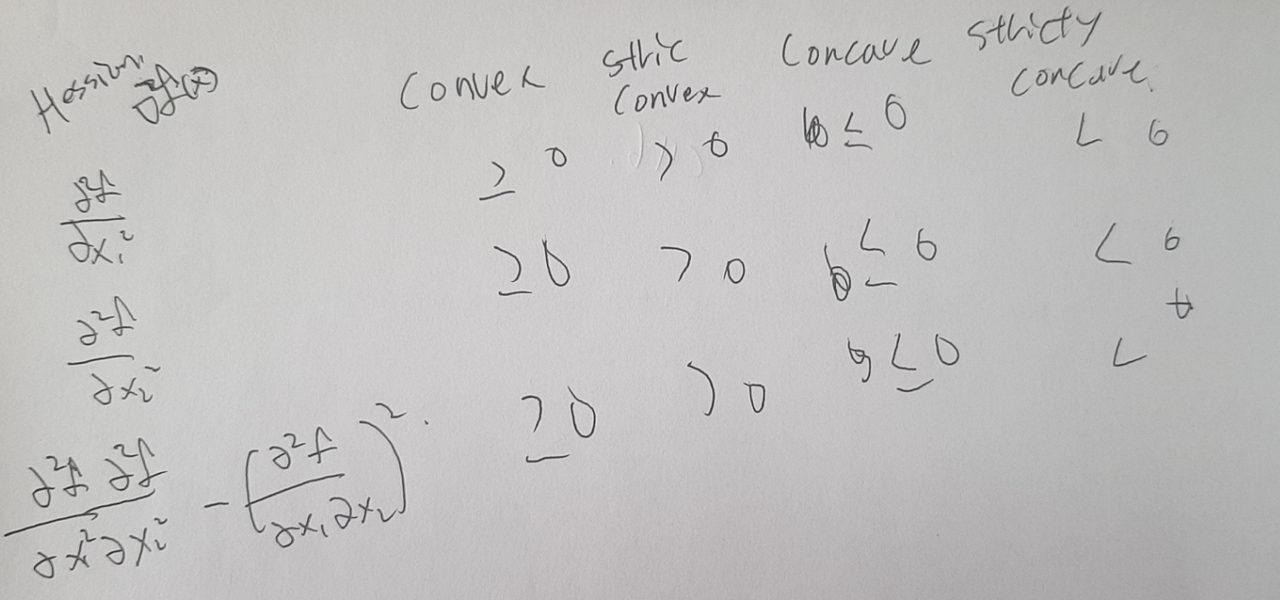 Hessian ∇²f(x) Convex stric Convex Concave stricty concave
∂²f/∂x₁² ≥ 0 > 0 ≤ 0 < 0
∂²f/∂x₂² ≥ 0 > 0 ≤ 0 < 0
∂²f ∂²f/∂x₁² ∂x₂² - (∂²f/∂x₁ ∂x₂)² ≥ 0 > 0 ≤ 0 <